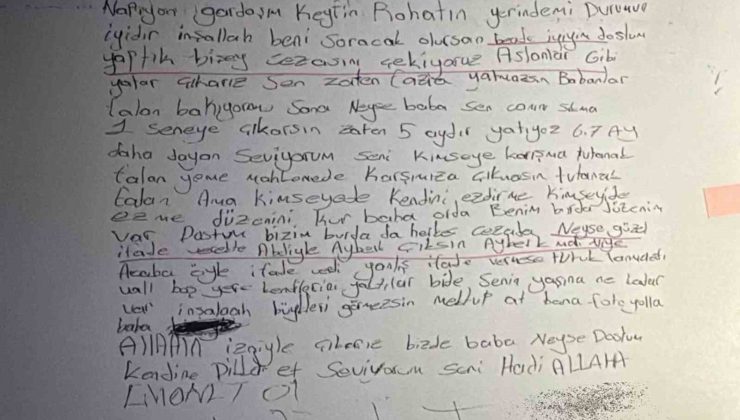 Napıyon gardaşım Keyfin Rahatın yerindemi Durumun
iyidir inşallah beni Soracak olursan bende iyiyim dostum
yaptık bizey cezasını çekiyoruz Aslanlar Gibi
yatar çıkarız Sen zaten fazla yatmazsın Babanlar
falan bakıyorum Sana Neyse baba sen canını sıkma
1 seneye çıkarsın zaten 5 aydır yatıyoz 6.7 Ay
daha dayan Seviyorum seni Kimseye karışma tutanak
falan yeme mahkemede Karşımıza çıkmasın tutanak
falan Ama kimseyede Kendini ezdirme Kimseyide
ezme düzenini kur baba orda Benim burda düzenim
var Dostum bizim burda da herkes cezada Neyse güzel
ifade Abliyle Ayberk Çıksın Ayberk
Acaba öyle ifade yanlış ifade vermese
vall boş yere yaptılar bide Senin yaşına ne kadar
var insalaah göremezsin mektup at bana foto yolla
baba
AllAHIN izniyle çıkarız bizde baba Neyse Dostum
Kendine Dikkat et Seviyorum Seni Hadi ALLAHA
EMANET Ol